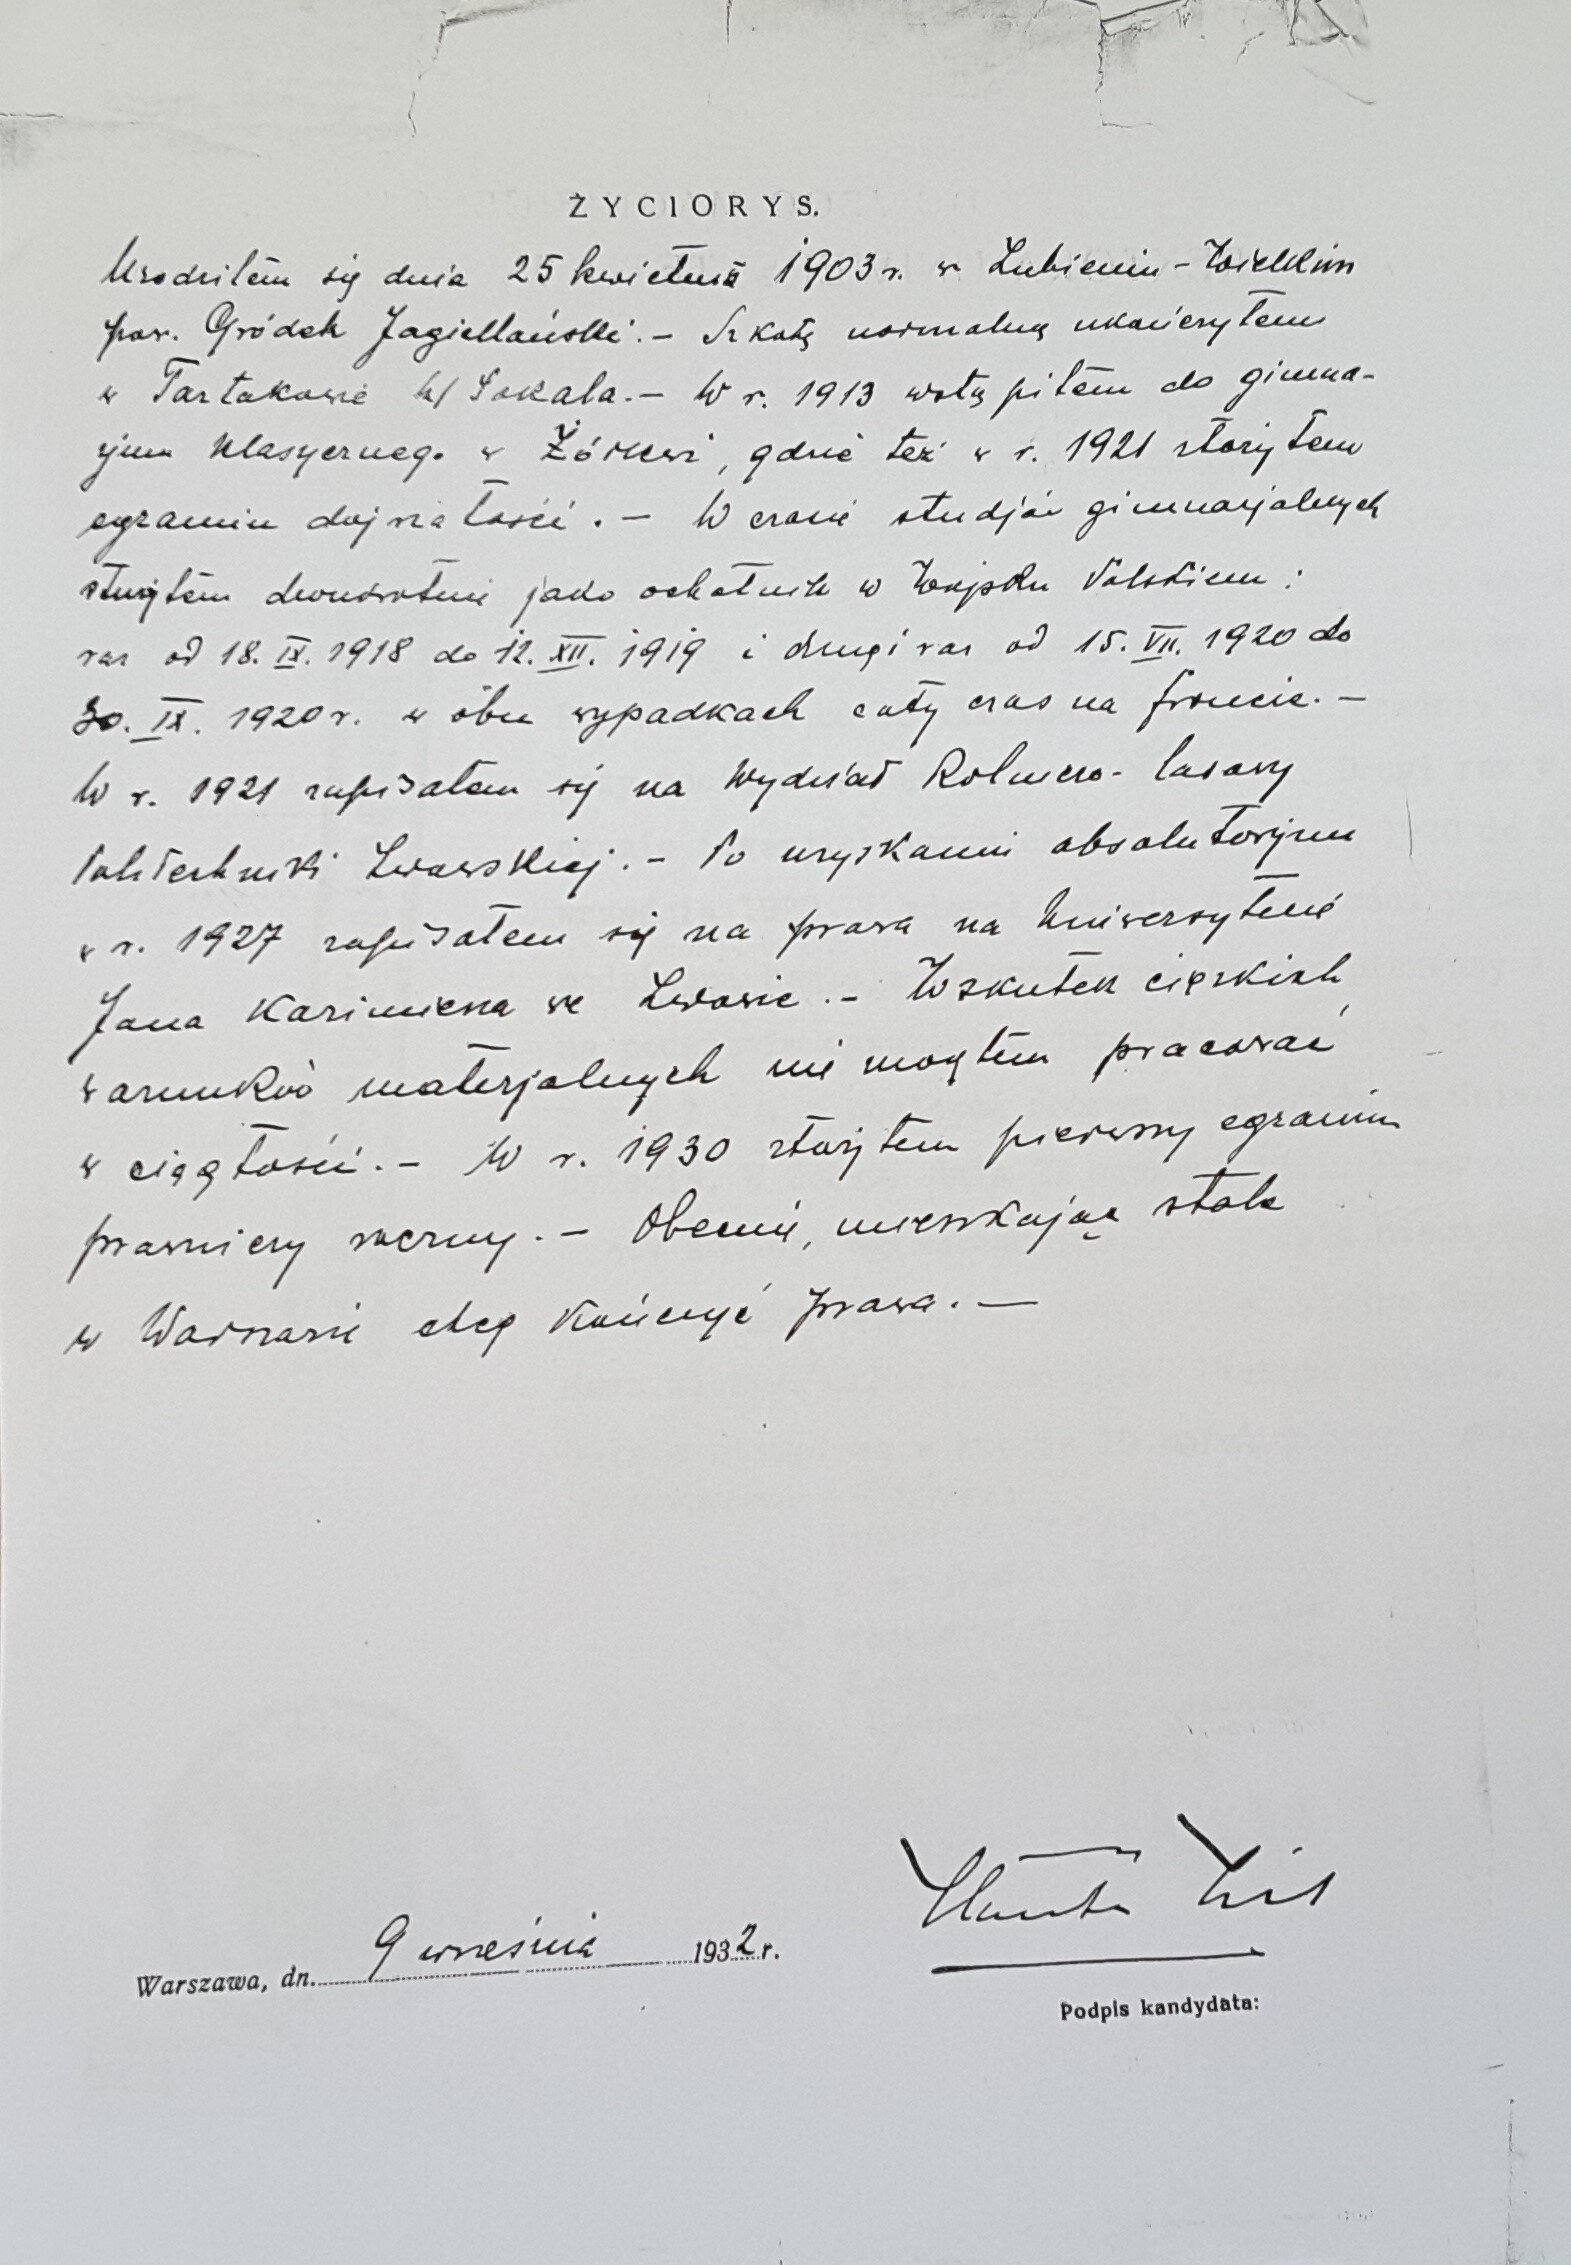 ŻYCIORYS.
Urodziłem się dnia 25 kwietnia 1903 r. w Lubieniu-Wielkim
pow. Gródek Jagielloński. – Szkołę normalną ukończyłem
w Tartakowie k/ Sokala. – W r. 1913 wstąpiłem do gimna-
zjum klasycznego w Żółkwi, gdzie też w r. 1921 złożyłem
egzamin dojrzałości. – W czasie studjów gimnazjalnych
służyłem dwukrotnie jako ochotnik w Wojsku Polskiem:
raz od 18. IX. 1918 do 12. XII. 1919 i drugi raz od 15. VII. 1920 do
30. IX. 1920 r. w obu wypadkach cały czas na froncie. –
W r. 1921 zapisałem się na Wydział Rolniczo-lasowy
Politechniki Lwowskiej. – Po uzyskaniu absolutorjum
w r. 1927 zapisałem się na prawa na Uniwersytecie
Jana Kazimierza we Lwowie. – Wskutek ciężkich
warunków materjalnych nie mogłem pracować
w ciągłości. – W r. 1930 złożyłem pierwszy egzamin
prawniczy roczny. – Obecnie, mieszkając stale
w Warszawie chcę kończyć prawa. –
Warszawa, dn. 9 września 1932 r.
Podpis kandydata: